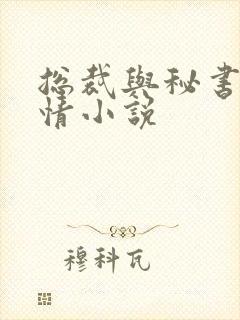 總裁與秘書
情小說
穆科瓦